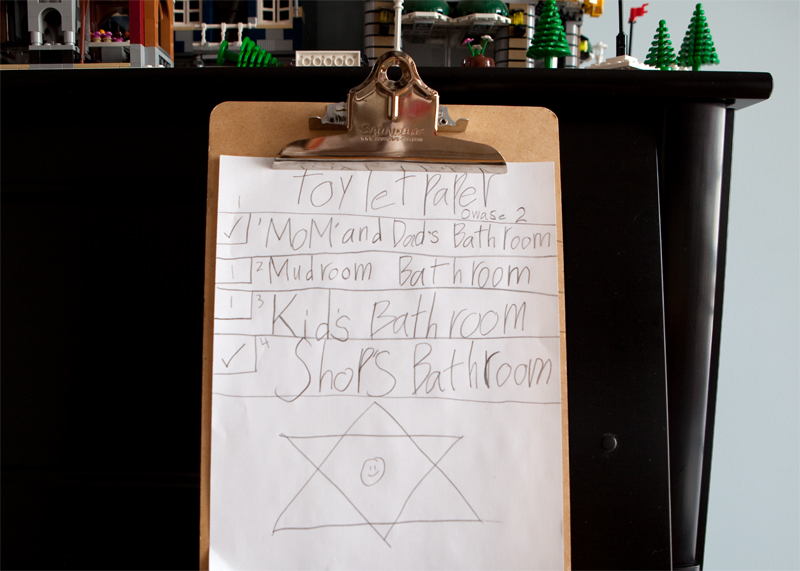 toy let paper
owase 2
1
✓ 1 MoM and Dad's Bathroom
1 2 Mudroom Bathroom
1 3 Kid's Bathroom
✓ 4 Shop's Bathroom